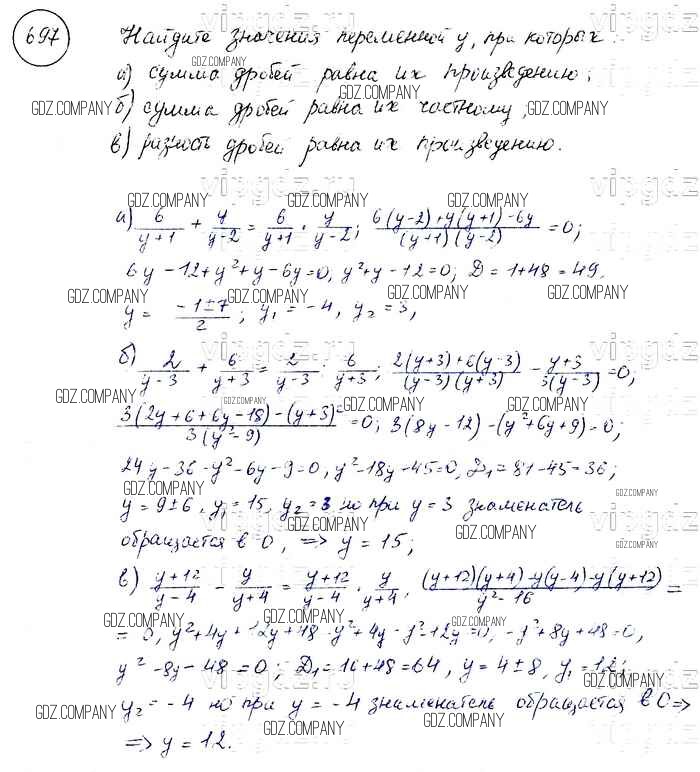 697
Найдите значения переменной y, при которых:
а) сумма дробей равна их произведению;
б) сумма дробей равна их частному;
в) разность дробей равна их произведению.
а) 6/(y+1) + y/(y-2) = 6/(y+1) · y/(y-2); (6(y-2)+y(y+1)-6y)/((y+1)(y-2)) = 0;
6y-12+y²+y-6y=0, y²+y-12=0; D=1+48=49,
y = (-1±7)/2; y₁=-4, y₂=3,
б) 2/(y-3) + 6/(y+3) = 2/(y-3) : 6/(y+3); (2(y+3)+6(y-3))/((y-3)(y+3)) - (y+3)/(3(y-3)) = 0;
(3(2y+6+6y-18)-(y+3)²)/(3(y²-9)) = 0; 3(8y-12)-(y²+6y+9)=0;
24y-36-y²-6y-9=0, y²-18y-45=0, D₁=81-45=36;
y=9±6, y₁=15, y₂=3 но при y=3 знаменатель
обращается в 0, => y=15;
в) (y+12)/(y-4) - y/(y+4) = (y+12)/(y-4) · y/(y+4), ((y+12)(y+4)-y(y-4)-y(y+12))/(y²-16) =
= 0, y²+4y+12y+48-y²+4y-y²-12y=0, -y²+8y+48=0,
y²-8y-48=0; D₁=16+48=64, y=4±8, y₁=12;
y₂=-4 но при y=-4 знаменатель обращается в 0 =>
=> y=12.
vipgdz.ru
GDZ.COMPANY